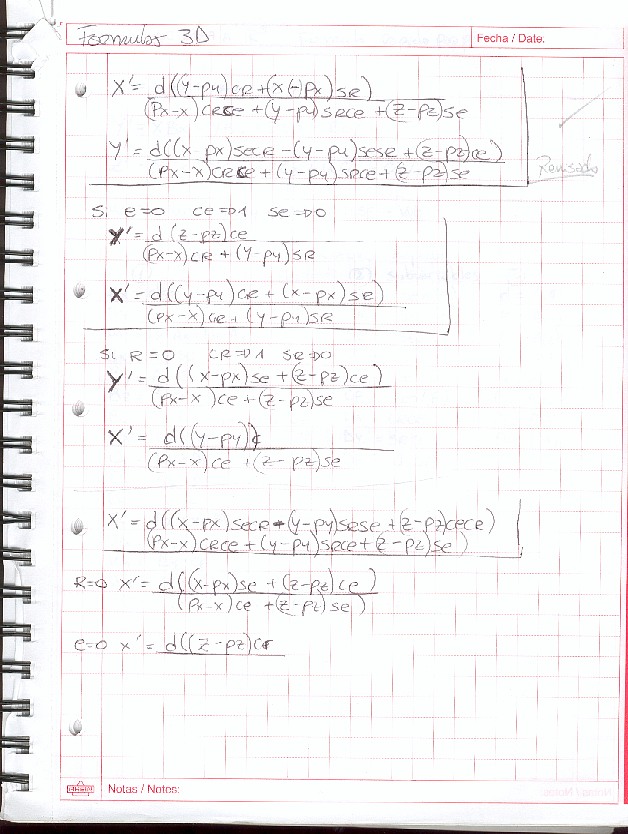 Formulas 3D
Fecha / Date:
X' = d((y-py)CR+(x(-)px)SR)
(Px-x)CRCe + (y-py)SRCe + (z-pz)Se
Y' = d((x-px)SeCR-(y-py)SeSR+(z-pz)Ce)
(Px-x)CRCe + (y-py)SRCe + (z-pz)Se
Revisado
Si e=0 Ce=D1 Se=D0
Y' = d(z-pz)Ce
(Px-x)CR + (y-py)SR
X' = d((y-py)CR + (x-px)Se)
(Px-x)CR + (y-py)SR
Si R=0 CR=D1 SR=D0
Y' = d((x-px)Se + (z-pz)Ce)
(Px-x)Ce + (z-pz)Se
X' = d((y-py))
(Px-x)Ce + (z-pz)Se
X' = d((x-px)SeCR+(y-py)SRSe+(z-pz)CeCe)
(Px-x)CRCe + (y-py)SRCe + (z-pz)Se)
R=0 X' = d((x-px)Se + (z-pz)Ce)
(Px-x)Ce + (z-pz)Se)
e=0 X' = d((z-pz)Ce
Notas / Notes: